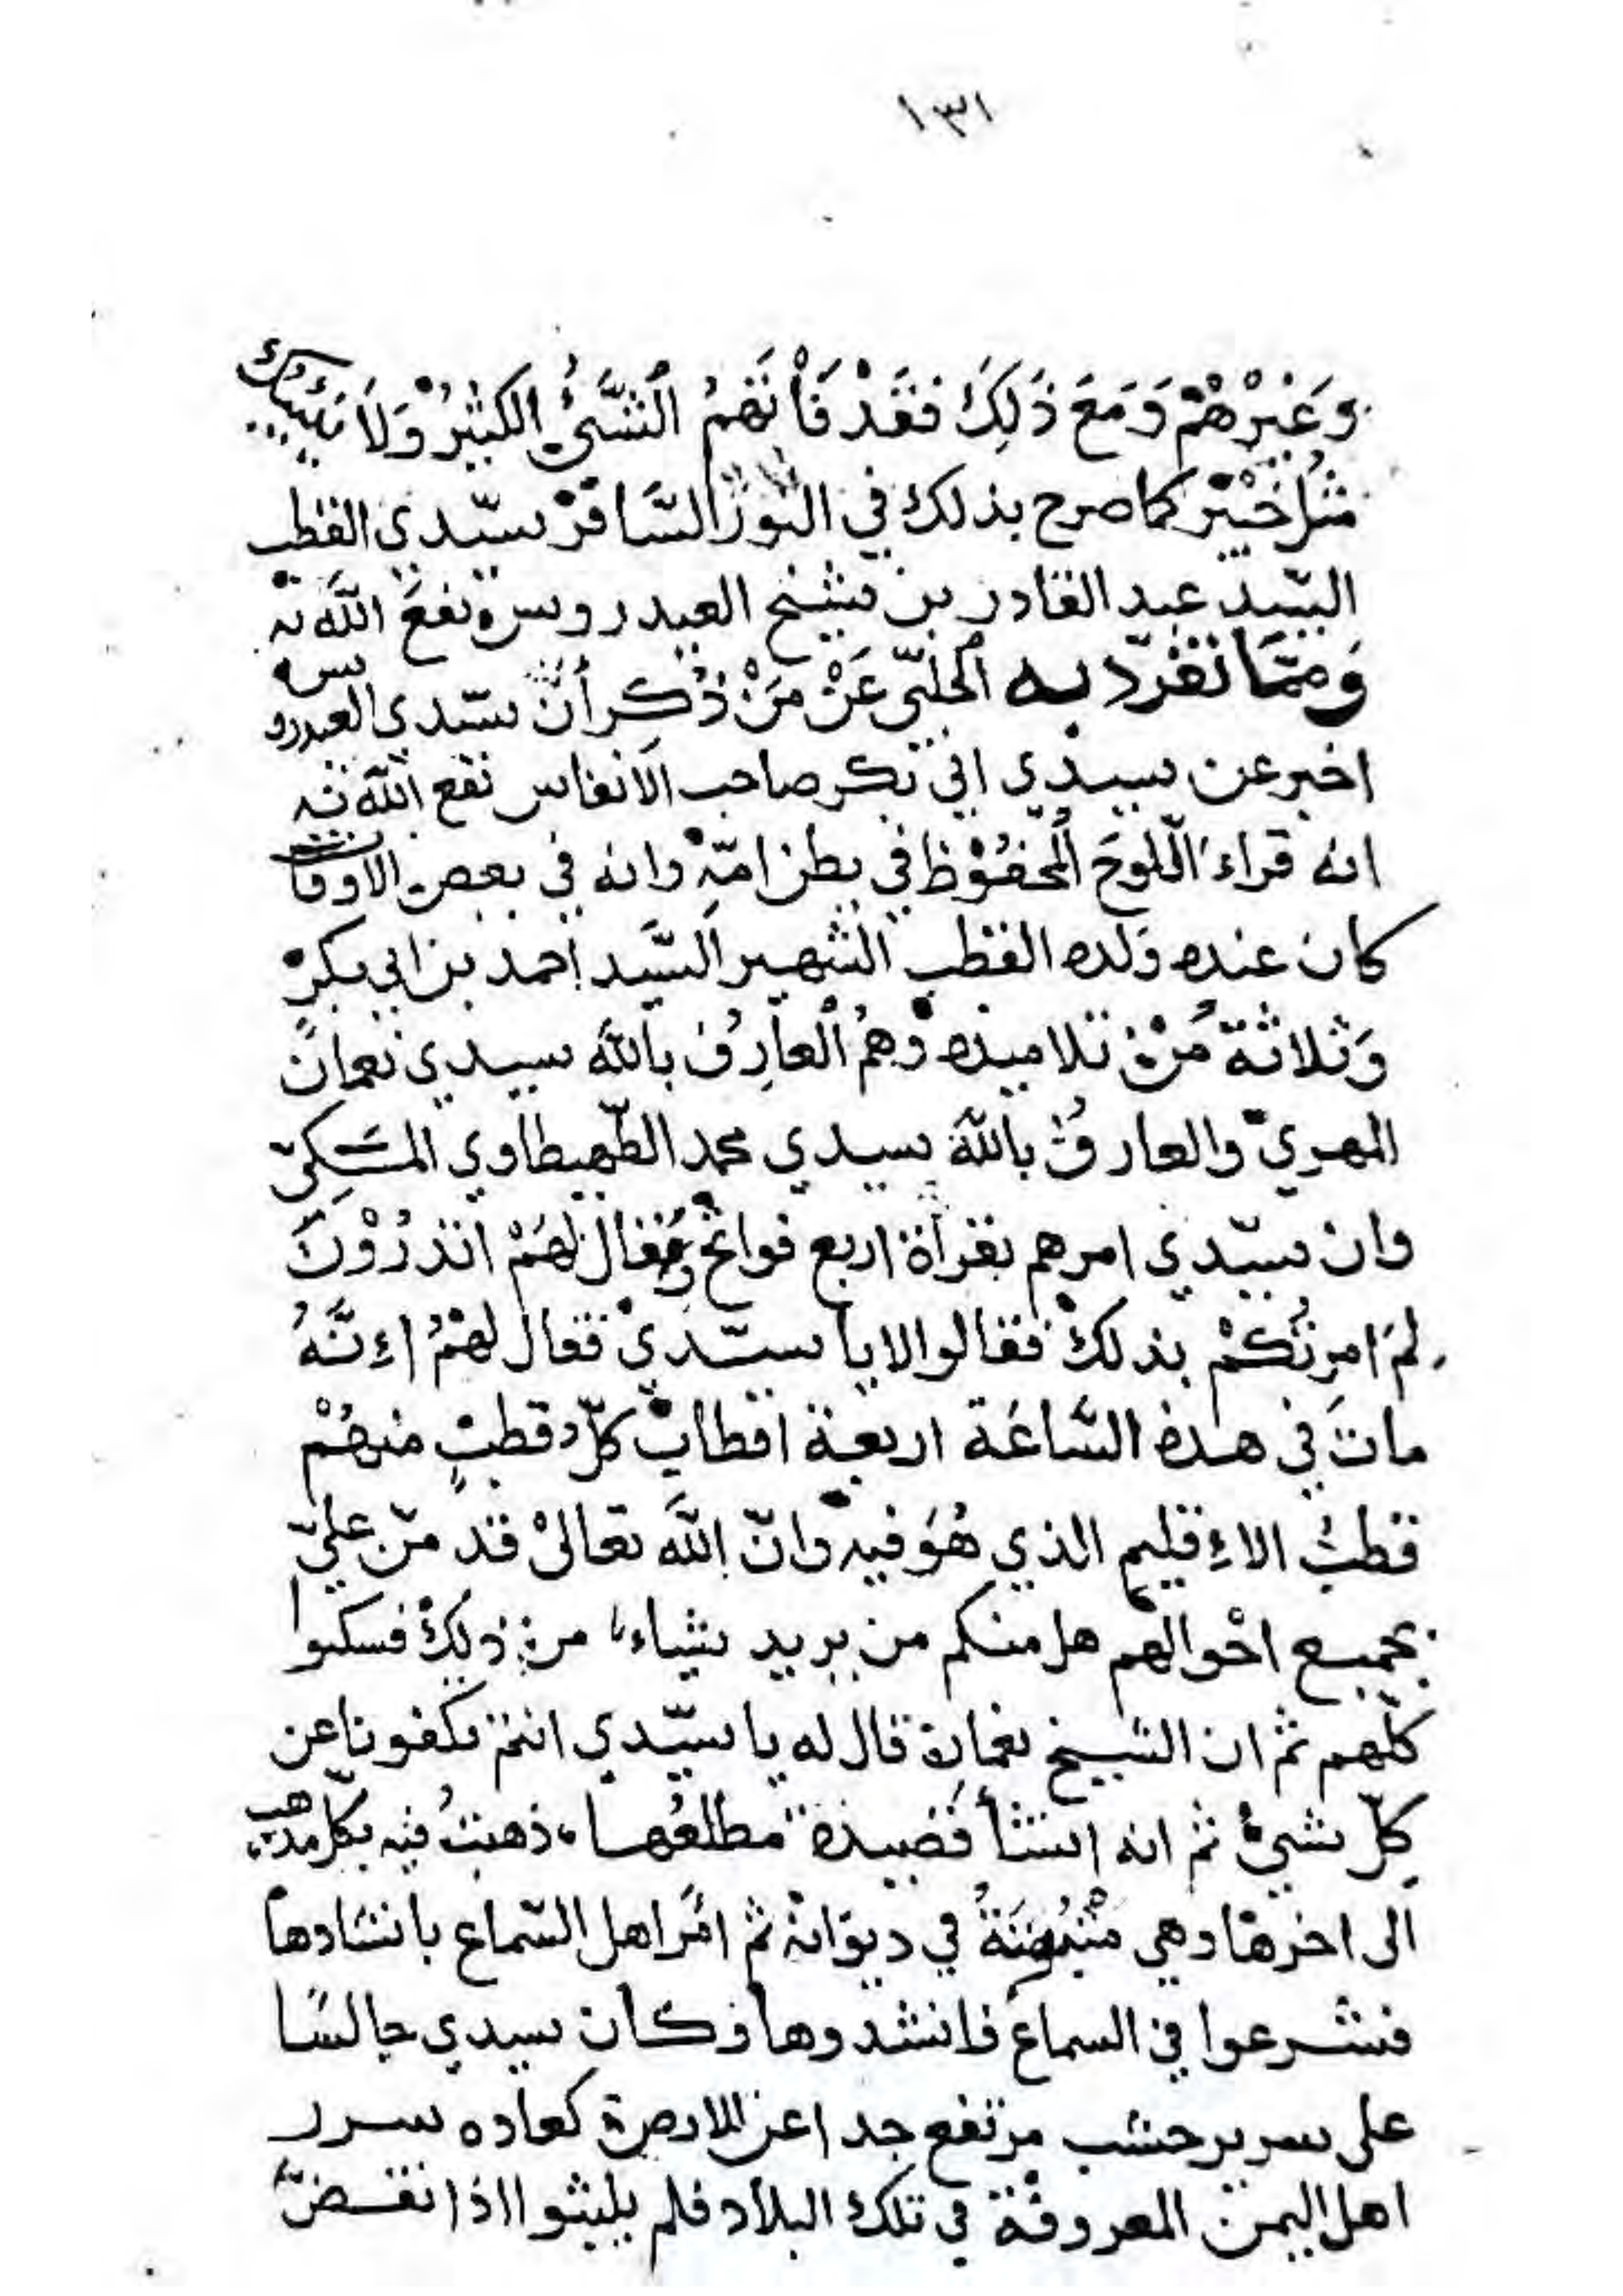 ١٣١
وَغَيْرِهُمْ وَمَعَ ذَلِكَ فَقَدْ فَاتَهُمُ الشَّئُ الكَثِيْرُ وَلَا يُنَبِّئُكَ
مِثْلُ خَبِيْر كما صرح بذلك في النّوْر السَّافرْ سيّدي القطب
السّيد عبد القادر بن شيخ العيدروس نفع اللَّه به
وَمِمَّا تفرّد به الحلبّي عَنْ مَنْ ذُكِر أنّ سيّدي العيدروس
اخبر عن سيدي ابي بكر صاحب الانفاس نفع اللّه به
انه قراءَ اللّلوحَ المحفُوْظ في بطن امّهِ وانه في بعض الاوقات
كان عنده وَلَده القطب الشهير السَّيد احمد بن ابي بكرْ
وَثلاثة مُنْ تلاميذه وَهُمُ العارِفُ باللَّه سيدي نعمان
المهريّ والعارفُ باللّه سيدي محمد الطّهطاوي المسَكِيّ
وان سيّدي امرهم بقرأة اربع فواتح وقال لهَمْ اتَدْرُوْنَ
لِمَ امرتُكُمْ بذلك فقالوا لا يا سيّديْ فقال لهمُ اءِنَّهُ
ماتَ في هذه السَّاعَة اربعة اقطابٌ كلّ قطبٍ منهُمْ
قطبُ الاءِقليم الذي هُوَ فيه وانّ اللَّه تعالىْ قد منّ عليّ
بجميع احْوالهم هل منكم من يريد شياءً من ذلِكَ فسكتوا
كلّهم ثمّ ان الشيخ نعمان قال له يا سيّدي انتم تكفونا عن
كلّ شئٍ ثم انه انشأ قصيدة مطلعُها ذهبتُ فيه بكلّ مذهب
الى اخرها وهي مثبُتةُ في ديوَانه ثم امَر اهل السّماع بانشادها
فشرعوا في السماع فانشدوها وكان سيدي جالسًا
على سرير خشب مرتفع جدا عن الارض كعاده سرر
اهل اليمن المعروفة في تلك البلاد فلم يلبثوا اذا نقضّ